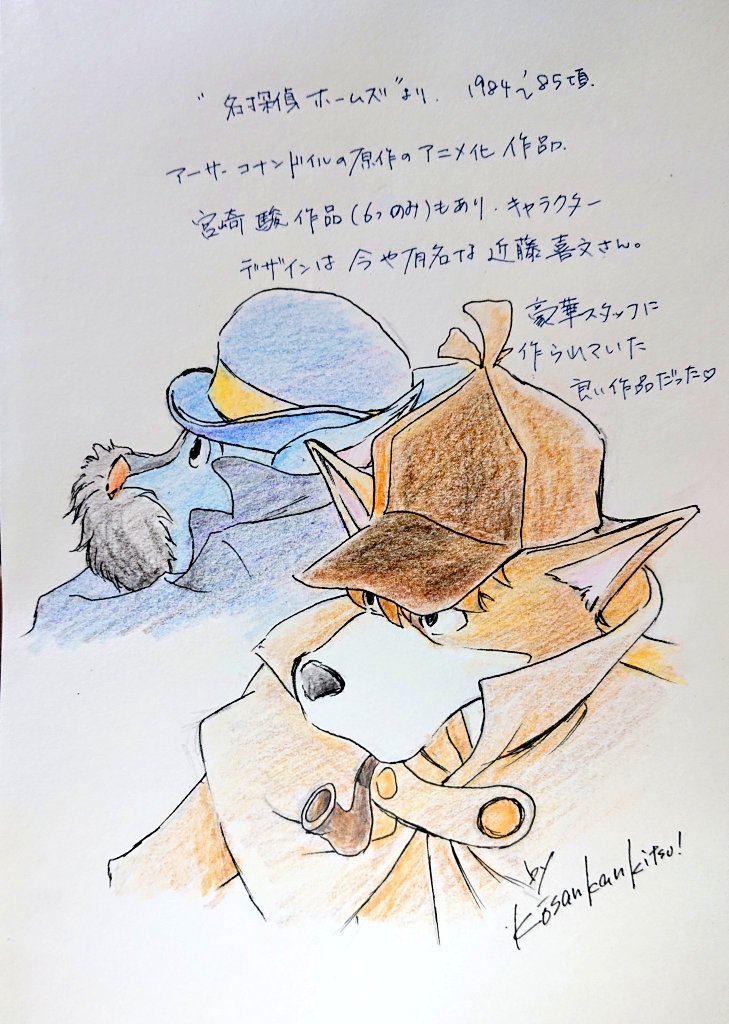 "名探偵ホームズ"より. 1984~'85頃.
アーサーコナンドイルの原作のアニメ化作品.
宮崎駿作品(6つのみ)もあり.キャラクター
デザインは今や有名な近藤喜文さん。
豪華スタッフに
作られていた
良い作品だった♡
by
Kōsankankitsu!